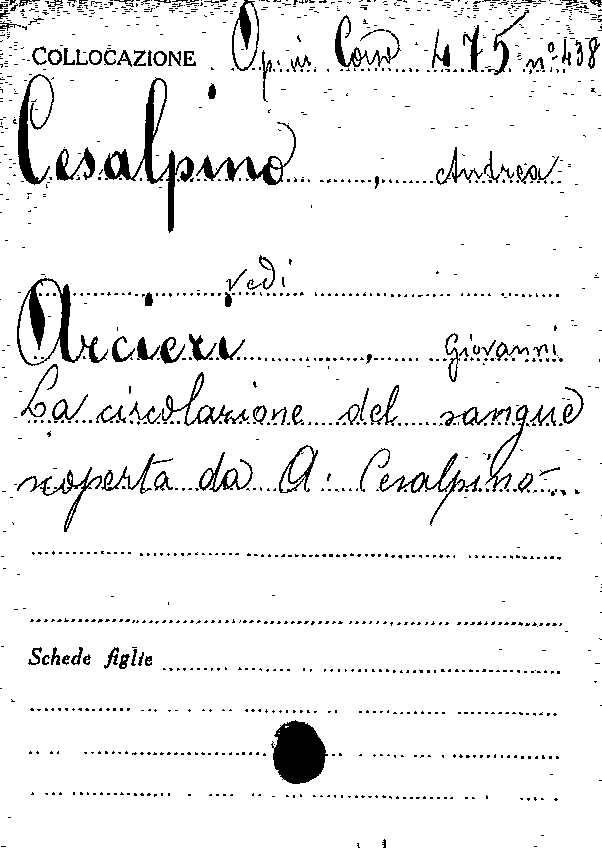 COLLOCAZIONE Op. in Cons 475 n° 438
Cesalpino, Andrea
vedi
Arcieri, Giovanni
La circolazione del sangue
scoperta da A. Cesalpino -
Schede figlie